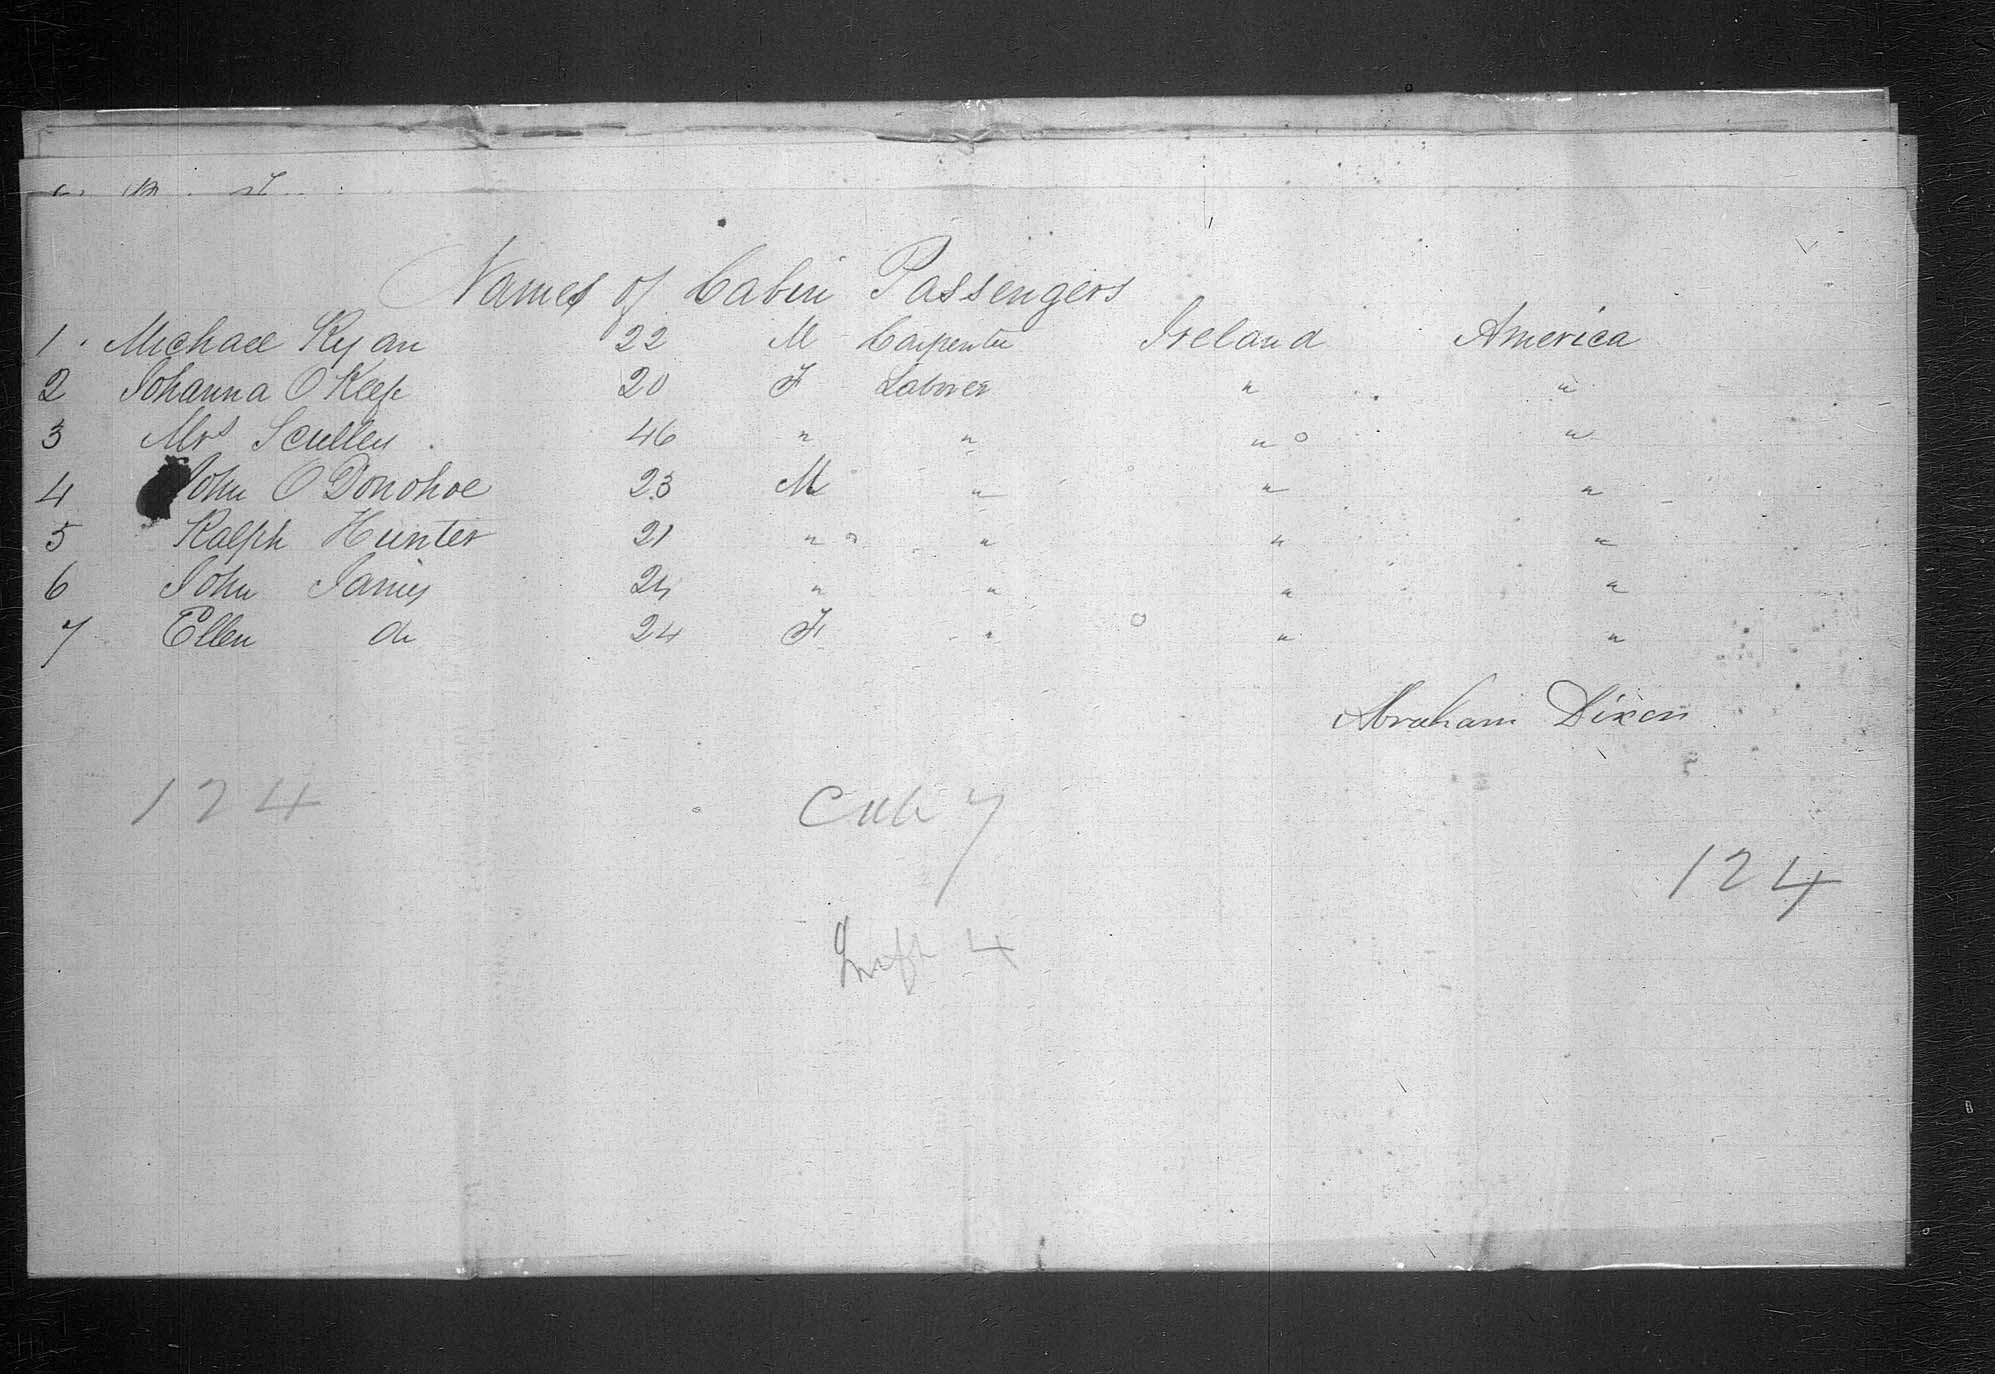 Names of Cabin Passengers
1 Michael Ryan 22 M Carpenter Ireland America
2 Johanna O Keefe 20 F Laborer " "
3 Mrs Sculley 46 " " " "
4 John O Donohoe 23 M " " "
5 Ralph Hunter 21 " " " "
6 John James 24 " " " "
7 Ellen do 24 F " " "
Abraham Dixon
124 Cab 7
124
4